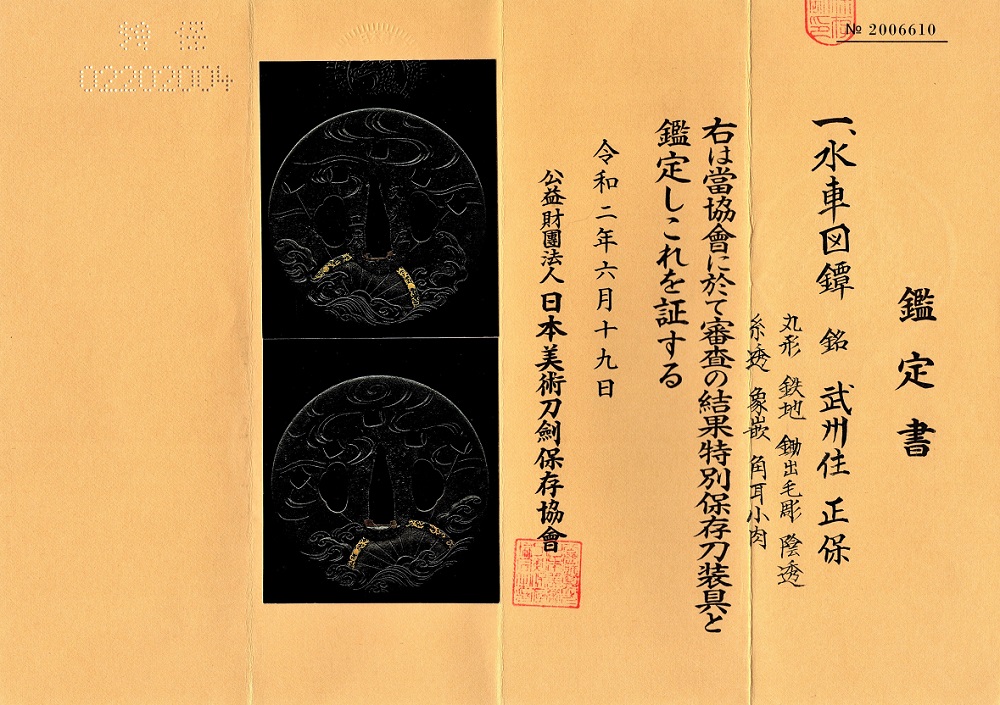 № 2006610
鑑定書
一、水車図鐔 銘 武州住 正保
丸形 鉄地 鋤出毛彫 陰透
糸透 象嵌 角耳小肉
右は當協會に於て審査の結果特別保存刀装具と
鑑定しこれを証する
令和二年六月十九日
公益財團法人 日本美術刀劍保存協會
特保
02202004